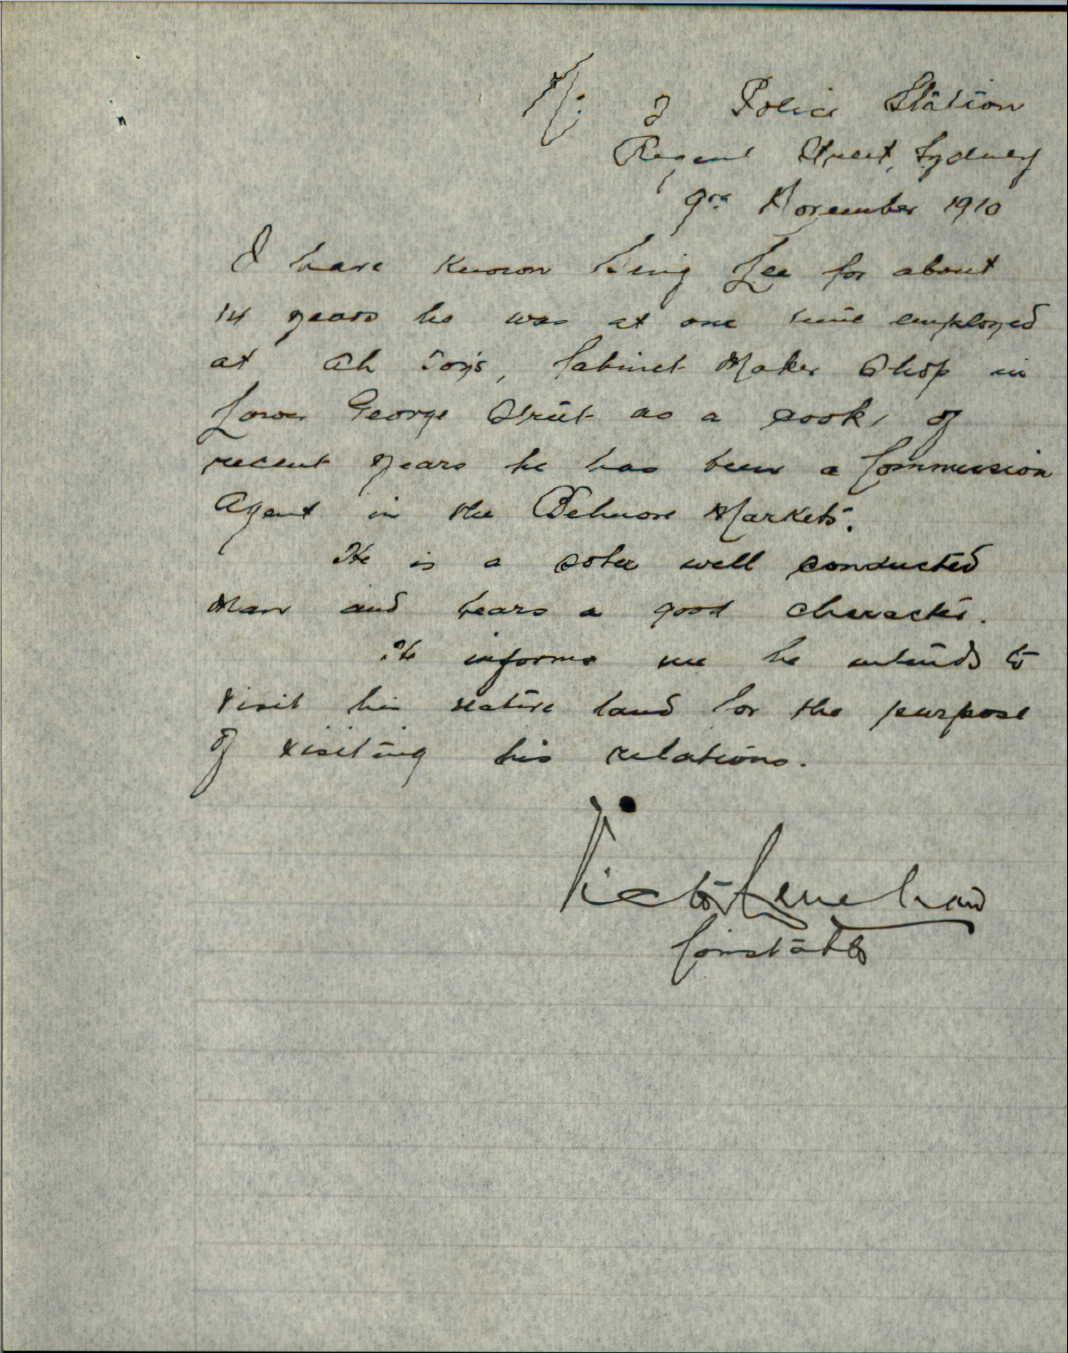 No. 2 Police Station
Regent Street, Sydney
9th November 1910
I have known Lee for about
14 years he was at one time employed
at Ah Toy's, Cabinet Maker Shop in
Lower George Street as a cook, of
recent years he has been a Commission
Agent in the Belmore Markets.
He is a sober well conducted
Man and bears a good character.
He informs me he intends to
visit his native land for the purpose
of visiting his relations.
Victor Lenehan
Constable